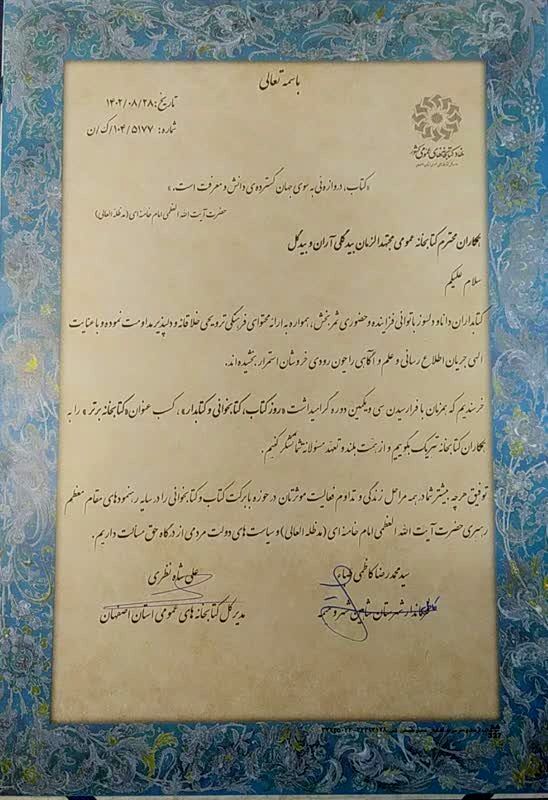 باسمه تعالی
تاریخ: ۱۴۰۲/۰۸/۲۸
شماره: ۱۰۴/۵۱۷۷/ک/ن
نهاد کتابخانه‌های عمومی کشور
«کتاب، دروازه‌ئی به سوی جهان گسترده‌ی دانش و معرفت است.»
حضرت آیت الله العظمی امام خامنه ای (مدظله العالی)
همکاران محترم کتابخانه عمومی مجتهدالزمان بیدگلی آران و بیدگل
سلام علیکم
کتابداران دانا و دلسوز با توانی فزاینده و حضوری ثمربخش، همواره به ارائه محتوای فرهنگی ترویجی خلاقانه و دلپذیر مداومت نموده و با عنایت
الهی جریان اطلاع رسانی و علم و آگاهی را چون رودی خروشان استمرار بخشیده اند.
خرسندیم که همزمان با فرارسیدن سی و یکمین دوره گرامیداشت «روز کتاب، کتابخوانی و کتابدار»، کسب عنوان «کتابخانه برتر» را به
همکاران کتابخانه تبریک بگوییم و از همّت بلند و تعهّد مسئولانه شما تشکر کنیم.
توفیق هرچه بیشتر شما در همه مراحل زندگی و تداوم فعالیت موثرتان در حوزه با برکت کتاب و کتابخوانی را در سایه رهنمودهای مقام معظم
رهبری حضرت آیت الله العظمی امام خامنه ای (مدظله العالی) و سیاست های دولت مردمی از درگاه حق مسئلت داریم.
سید محمدرضا کاظمی
علی شاه نظری
فرماندار شهرستان شاهین شهر و میمه
مدیر کل کتابخانه های عمومی استان اصفهان